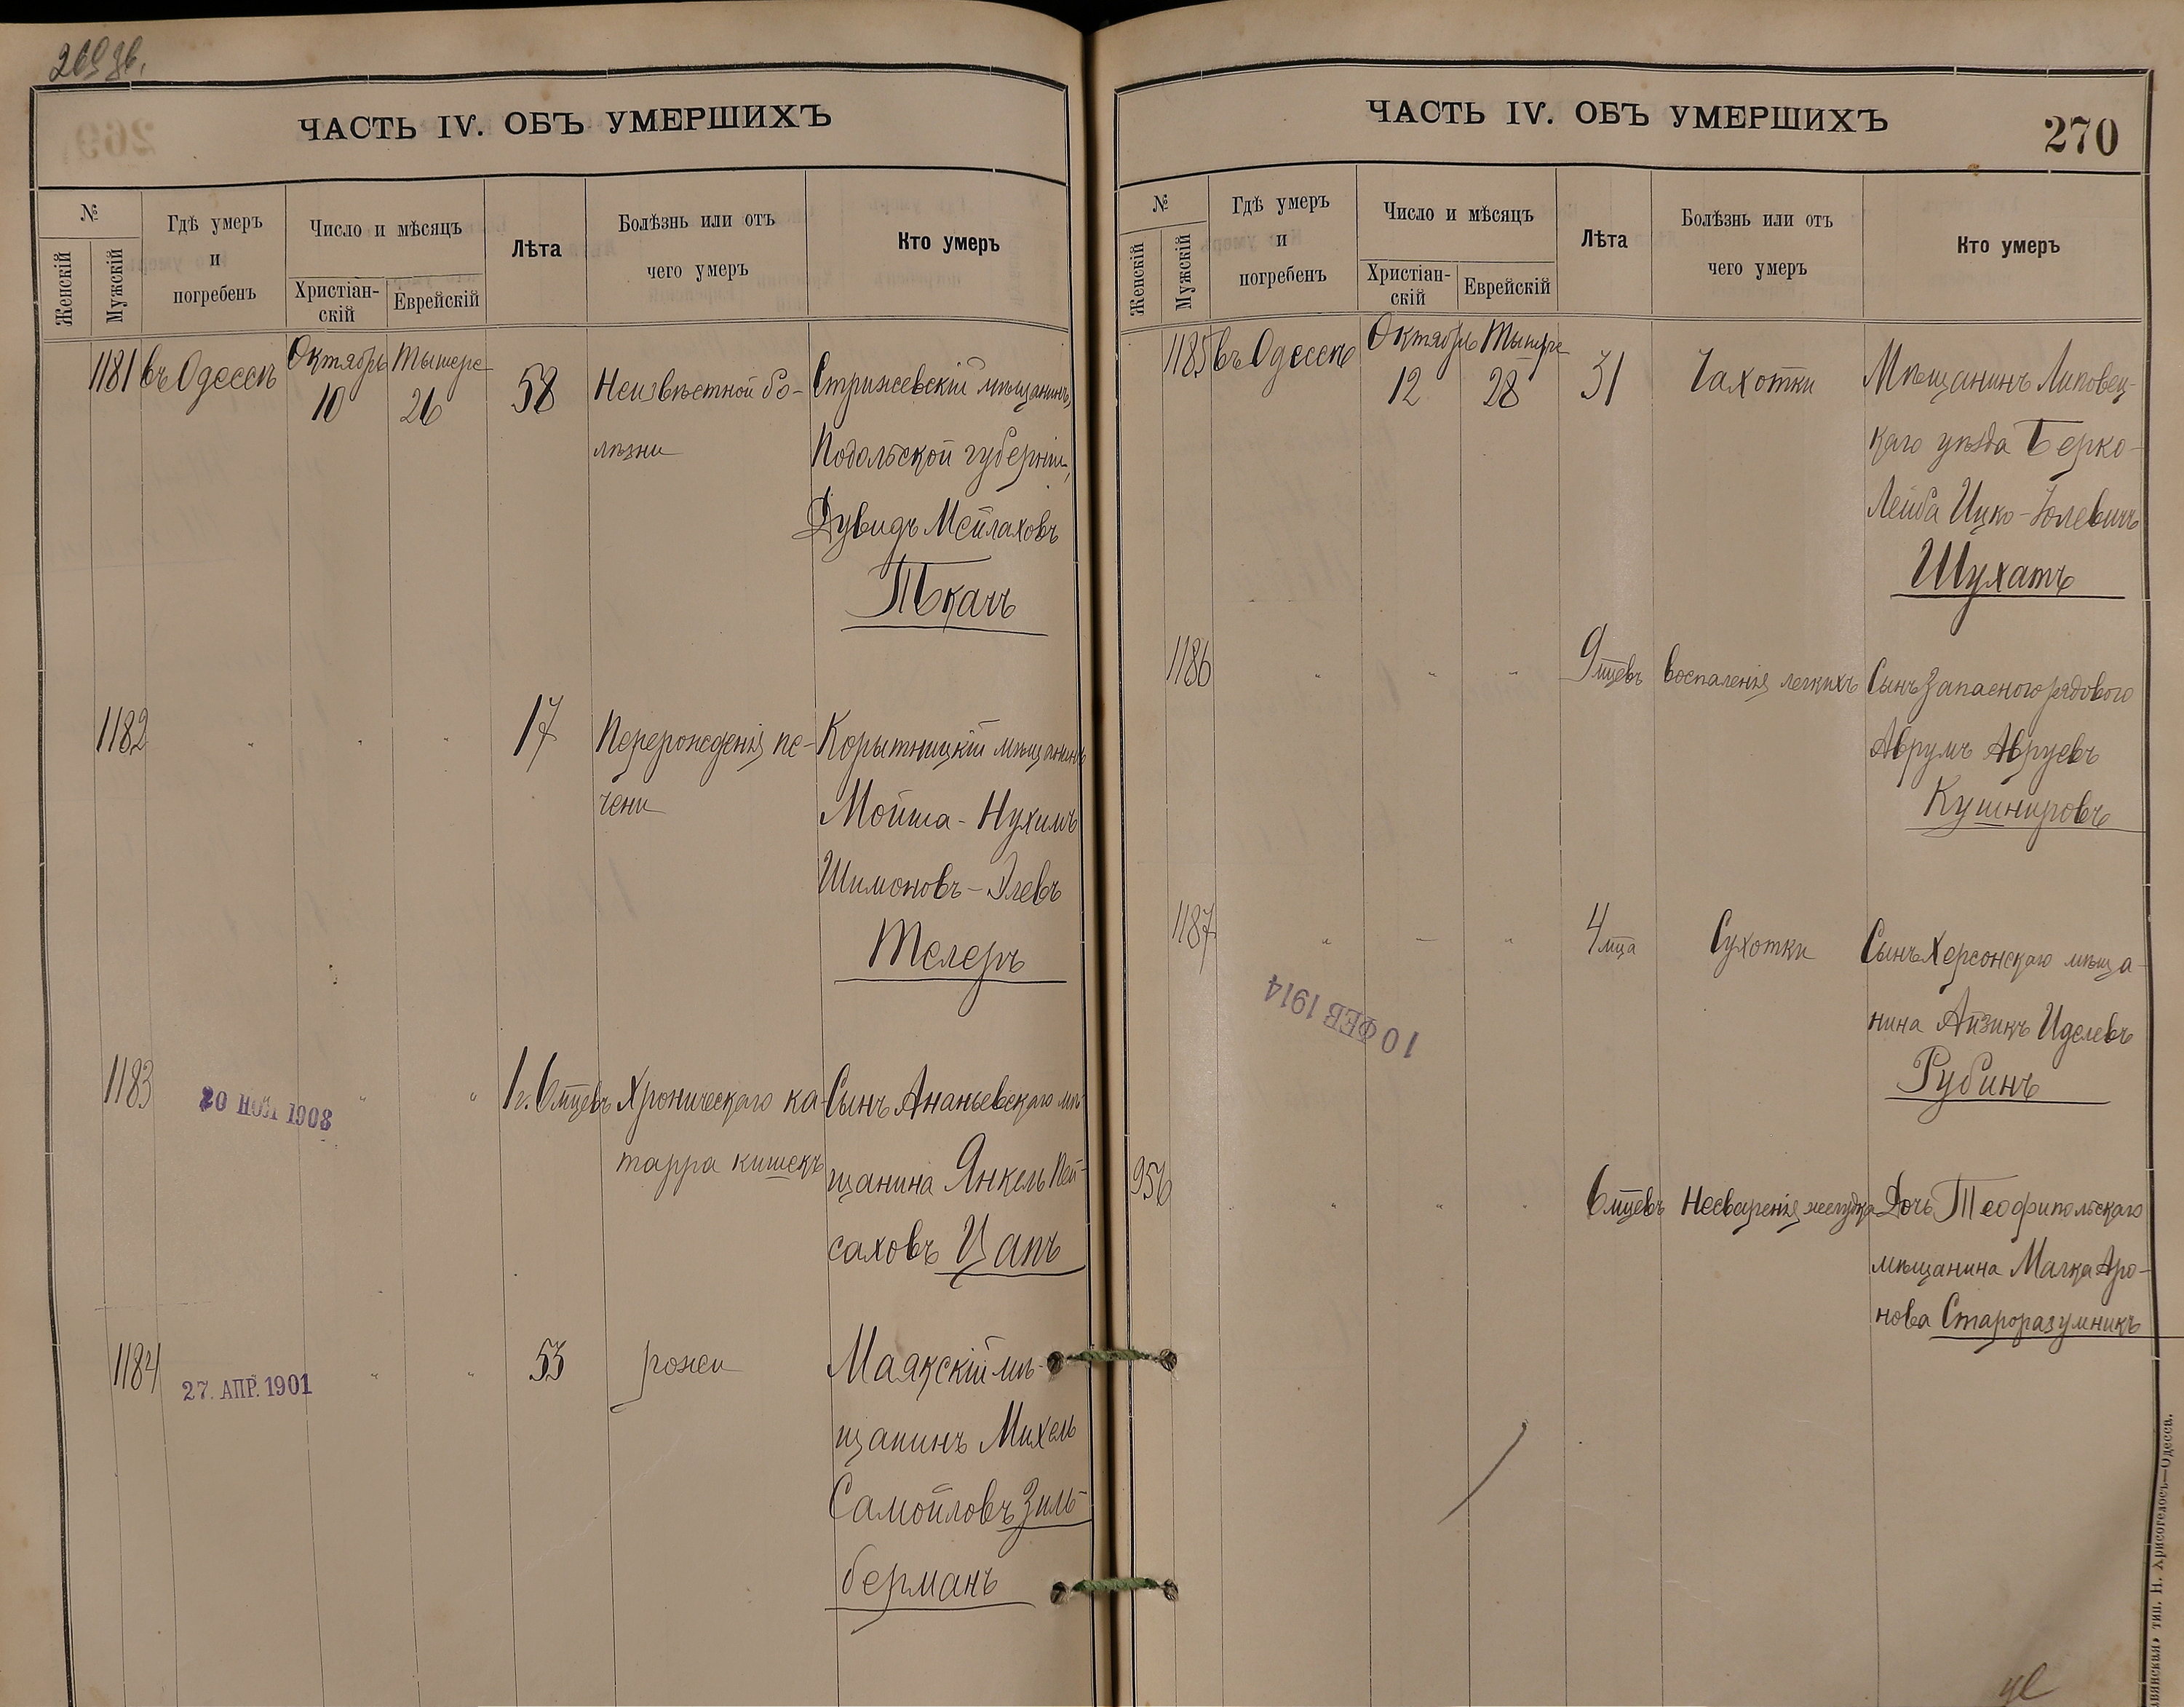 269 об.
ЧАСТЬ IV. ОБЪ УМЕРШИХЪ
№
Женскій
Мужскій
Гдѣ умеръ
и
погребенъ
Число и мѣсяцъ
Христіан-
скій
Еврейскій
Лѣта
Болѣзнь или отъ
чего умеръ
Кто умеръ
1181 въ Одессѣ Октябрь 10 Тышере 26 58 Неизвѣстной бо- Стрижевскій мѣщанинъ,
лѣзни Подольской губерніи,
Дувидъ Мейлаховъ
Ткачъ
1182 " " " 17 Перерожденія пе- Корытницкій мѣщанинъ
чени Мойша-Нухимъ
Шимоновъ-Элевъ
Телеръ
1183 20 НОЯ 1908 " " 1 г. 6 мцевъ Хроническаго ка- Сынъ Ананьевскаго мѣ-
тарра кишекъ щанина Янкель Пей-
саховъ Цапъ
1184 27. АПР. 1901 " " 53 рожи Маякскій мѣ-
щанинъ Михель
Самойловъ Зиль-
берманъ
ЧАСТЬ IV. ОБЪ УМЕРШИХЪ
270
№
Женскій
Мужскій
Гдѣ умеръ
и
погребенъ
Число и мѣсяцъ
Христіан-
скій
Еврейскій
Лѣта
Болѣзнь или отъ
чего умеръ
Кто умеръ
1185 въ Одессѣ Октябрь 12 Тышре 28 31 Чахотки Мѣщанинъ Липовец-
каго уѣзда Берко-
Лейба Ицко-Юлевичъ
Шухатъ
1186 " " " 9 мцевъ воспаленія легкихъ Сынъ запасного рядового
Аврумъ Авруевъ
Кушнировъ
1187 " — " 4 мца Сухотки Сынъ Херсонскаго мѣща-
10 ФЕВ 1914
нина Айзикъ Иделевъ
Рубинъ
956 " " " 6 мцевъ Несваренія желудка Дочь Теофипольскаго
мѣщанина Малка Аро-
нова Староразумникъ
тип. Н. Хрисогелосъ—Одесса.